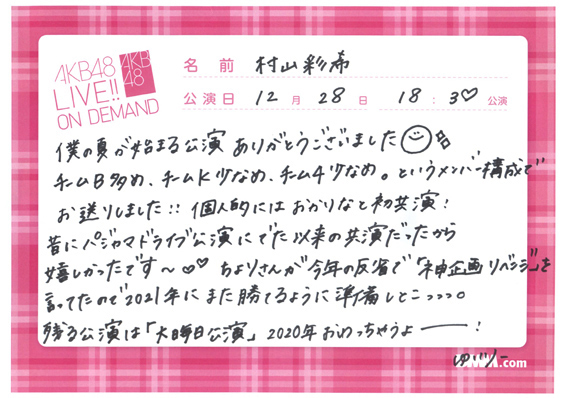 AKB48
LIVE!!
ON DEMAND
AKB
48
名前 村山彩希
公演日 12月28日 18:30公演
僕の夏が始まる公演 ありがとうございました
チームB多め、チームK少なめ、チーム4少なめ。というメンバー構成で
お送りしました!! 個人的にはおかりなと初共演!
昔にパジャマドライブ公演にでた以来の共演だったから
嬉しかったです〜♡♡ ちよりさんが今年の反省で「神企画リベンジ」を
言ってたので2021年にまた勝てるように準備しとこっっっ。
残る公演は「大晦日公演」2020年おわっちゃうよー!
ゆいりー
.com